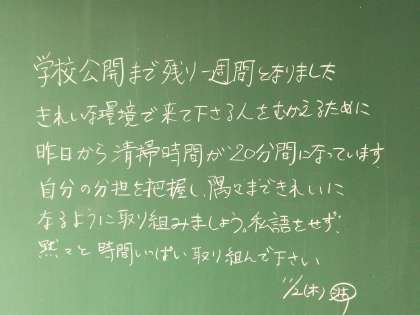 学校公開まで残り一週間となりました
きれいな環境で来て下さる人をむかえるために
昨日から清掃時間が20分間になっています
自分の分担を把握し、隅々まできれいに
なるように取り組みましょう。私語をせず、
黙々と時間いっぱい取り組んで下さい
11/2(木)